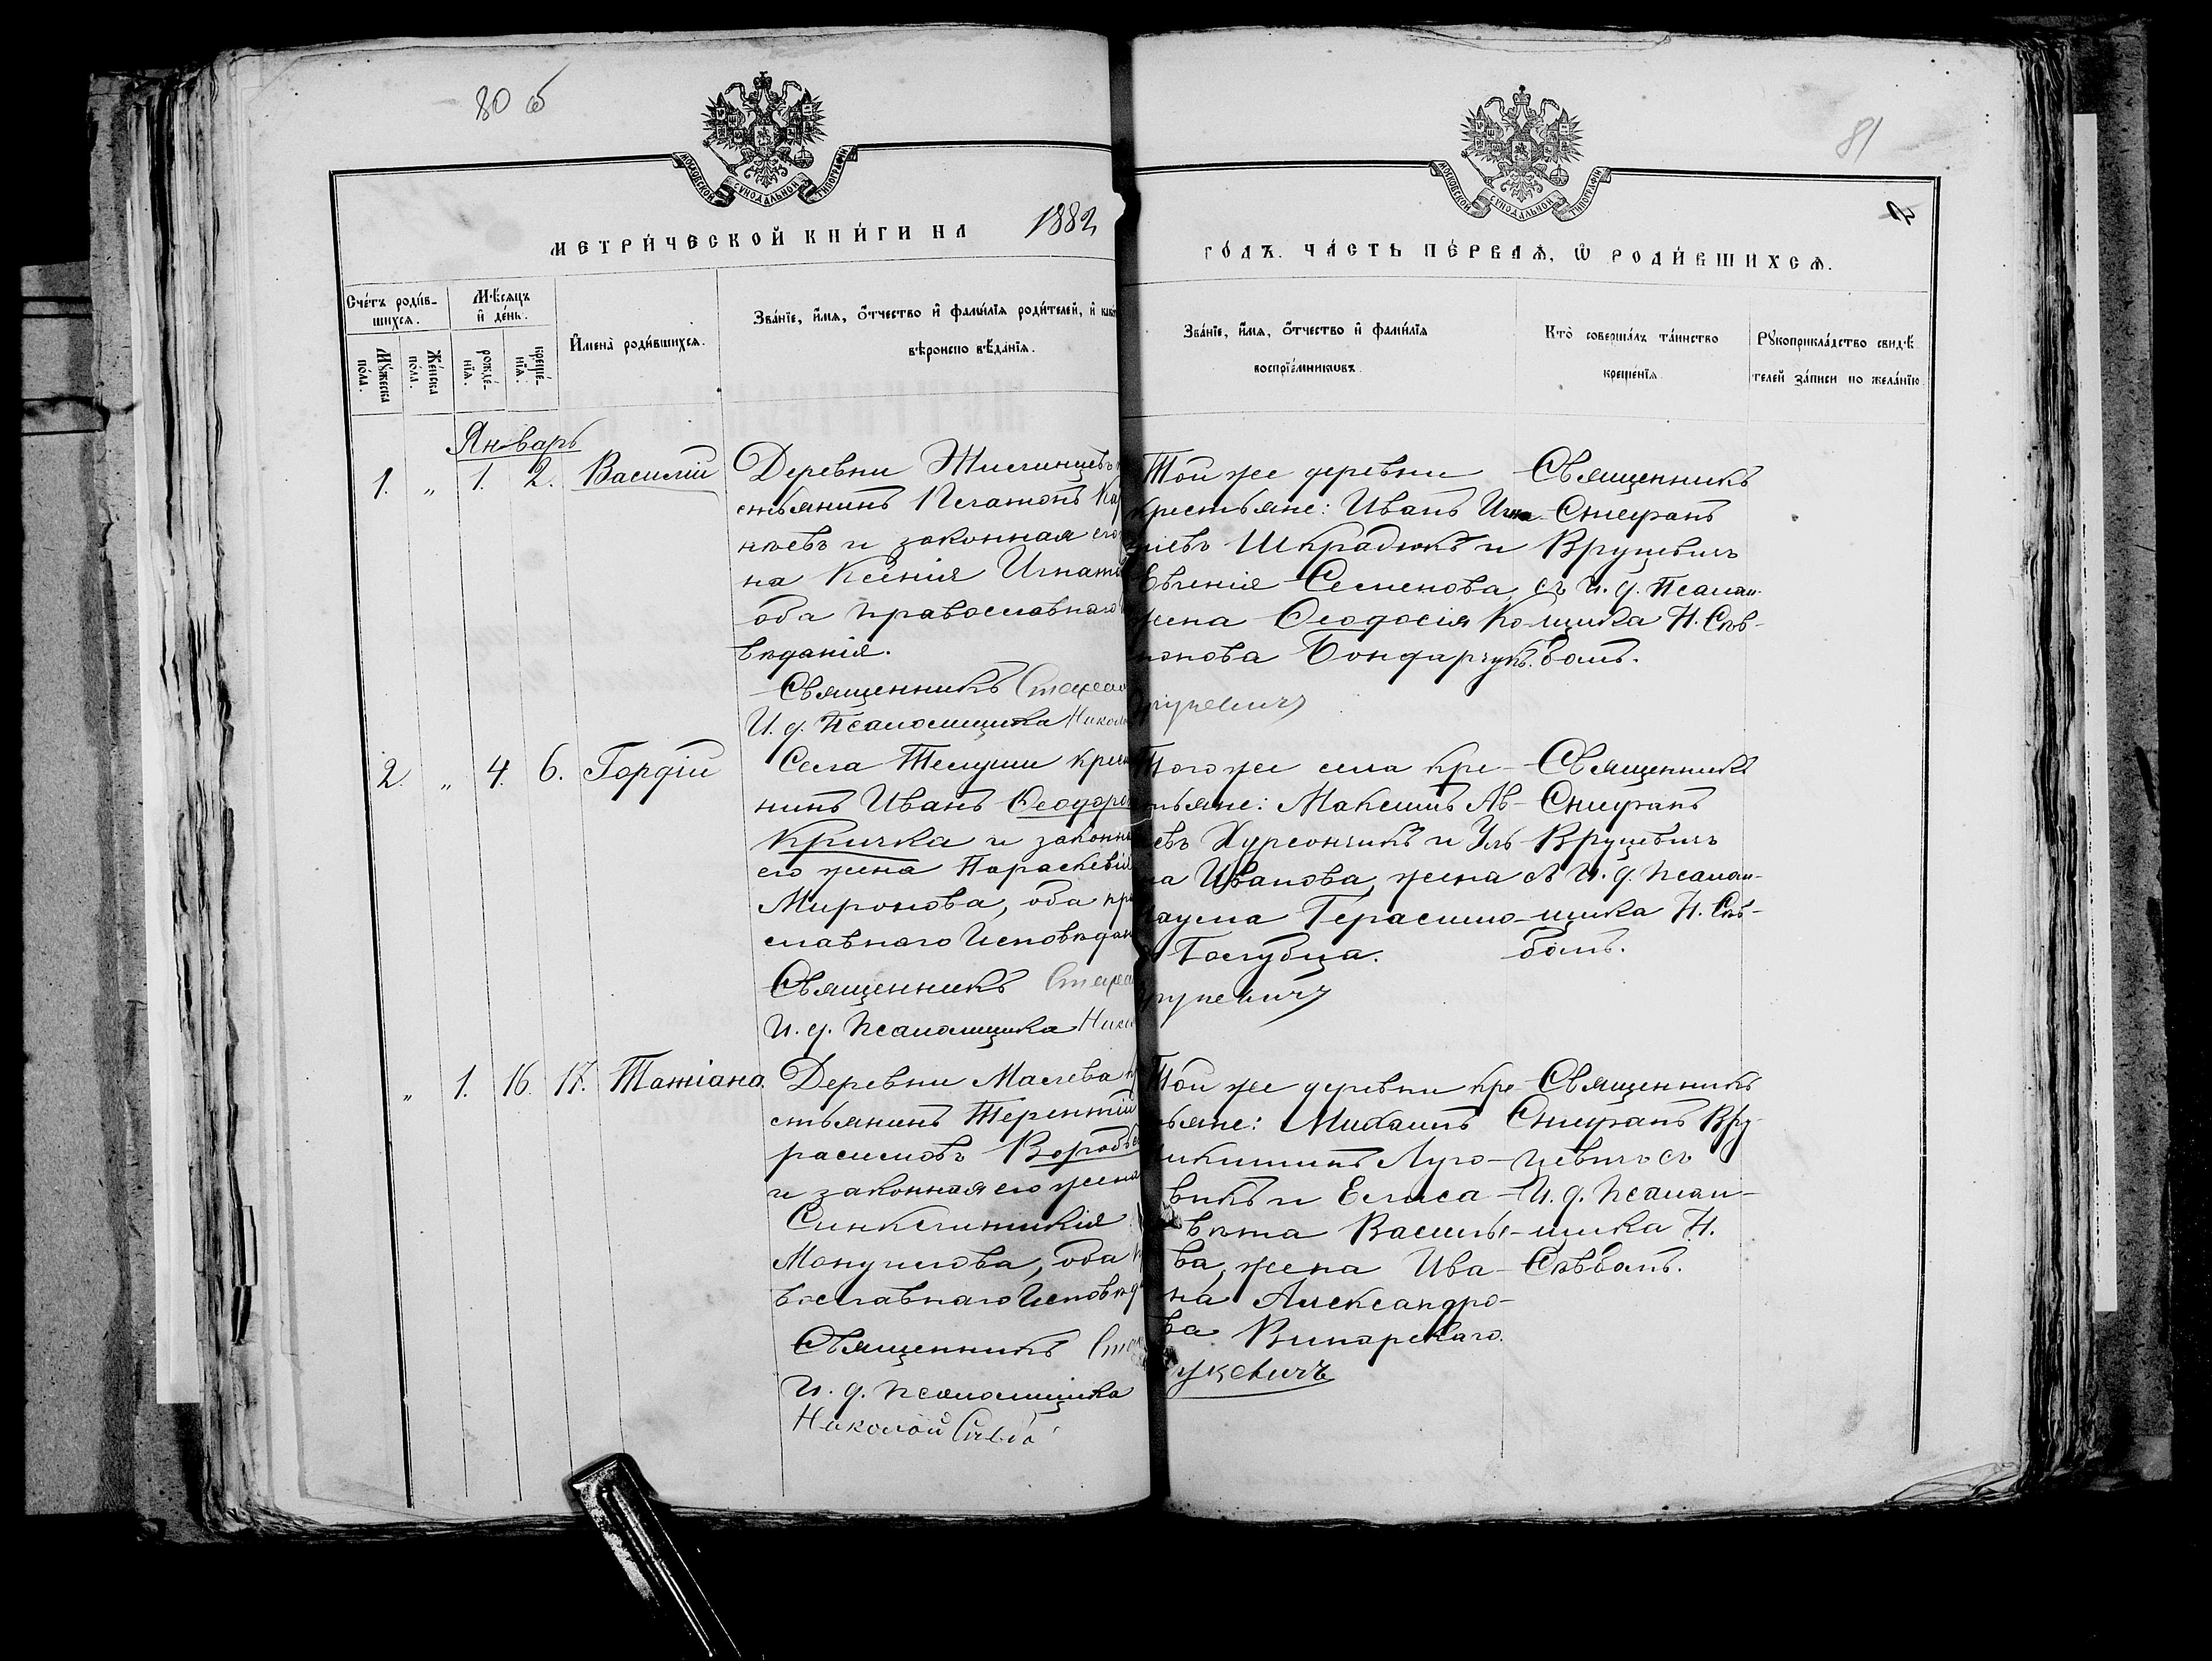 80 об
81
МОСКОВСКОЙ СѴНОДАЛЬНОЙ ТИПОГРАФІИ
МОСКОВСКОЙ СѴНОДАЛЬНОЙ ТИПОГРАФІИ
МЕТРИ́ЧЕСКОЙ КНИ́ГИ НА 1882
ГО́ДЪ. ЧА́СТЬ ПЕ́РВАѦ, Ѡ҆ РОДИ́ВШИХСѦ.
Сче́тъ роди́в-
шихсѧ.
Мꙋ́жеска
по́ла.
Же́нска
по́ла.
Мѣ́сѧцъ
и҆ де́нь.
рожде́-
нїѧ.
креще́-
нїѧ.
И҆мена̀ роди́вшихсѧ.
Зва́нїе, и҆́мѧ, ѻ҆́тчество и҆ фами́лїѧ роди́телей, и҆
вѣроисповѣ́данїѧ.
Зва́нїе, и҆́мѧ, ѻ҆́тчество и҆ фами́лїѧ
воспрїе́мникѡвъ.
Кто̀ соверша́лъ та́инство
креще́нїѧ
Рꙋкоприкла́дство свидѣ́-
телей за́писи по жела́нїю
Январь
1. " 1. 2. Василій
Деревни
стьянинъ Платонъ Кар
пѣевъ и законная его
на Ксенія Игнать
оба православнаго
вѣданія.
Священникъ Стефан
И. д. Псаломщика Никол
Той же деревни
крестьяне: Иванъ Игна
тіевъ Шкрадюкъ и
Евгенія Семенова,
жена Ѳеодосія Ко
нонова Бондарчукъ.
Священникъ
Стефанъ
Вруцевичъ
съ и. д. Псалом-
щика Н. Слѣ-
2. " 4. 6. Гордій
Села Телуши крест
нинъ Иванъ Ѳеодоро
Кричка и законна
его жена Параскевія
Миронова, оба пра
славнаго Исповѣдан
Священникъ Стефа
И. д. Псаломщика Нико
Того же села кре-
тьяне: Максимъ Ав-
евъ Хурсончикъ и Уль-
на Иванова, жена
Наума Герасимо-
Голубца.
Священникъ
Стефанъ
Вруцевичъ
съ И. д. Псалом-
щика Н. Слѣ-
" 1. 16. 17. Татіана.
Деревни Маслева
стьянинъ Терентій
расимовъ Воробьев
и законная его жена
Синклитикія
Мануилова, оба п
вославнаго Исповѣд
Священникъ Сте
И. д. Псаломщика
Николай
Той же деревни кре-
тьяне: Михаилъ
Никитинъ Луго-
викъ и Елиса-
вѣта Василье-
ва, жена Ива-
на Александро-
ва Винарскаго.
Священникъ
Стефанъ Вру-
цевичъ съ
И. д. Псалом-
щика Н.